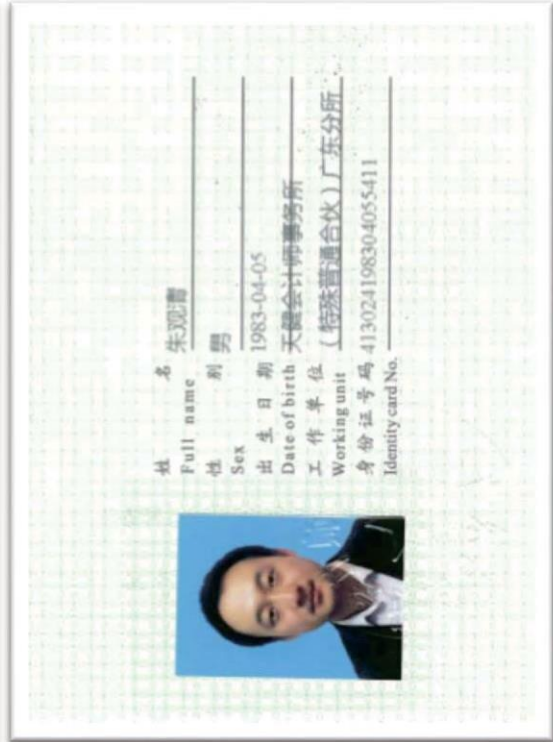 姓 名 朱观清
Full name
性 别 男
Sex
出 生 日 期 1983-04-05
Date of birth
工 作 单 位 天健会计师事务所
Working unit (特殊普通合伙)广东分所
身份证号码 413024198304055411
Identity card No.